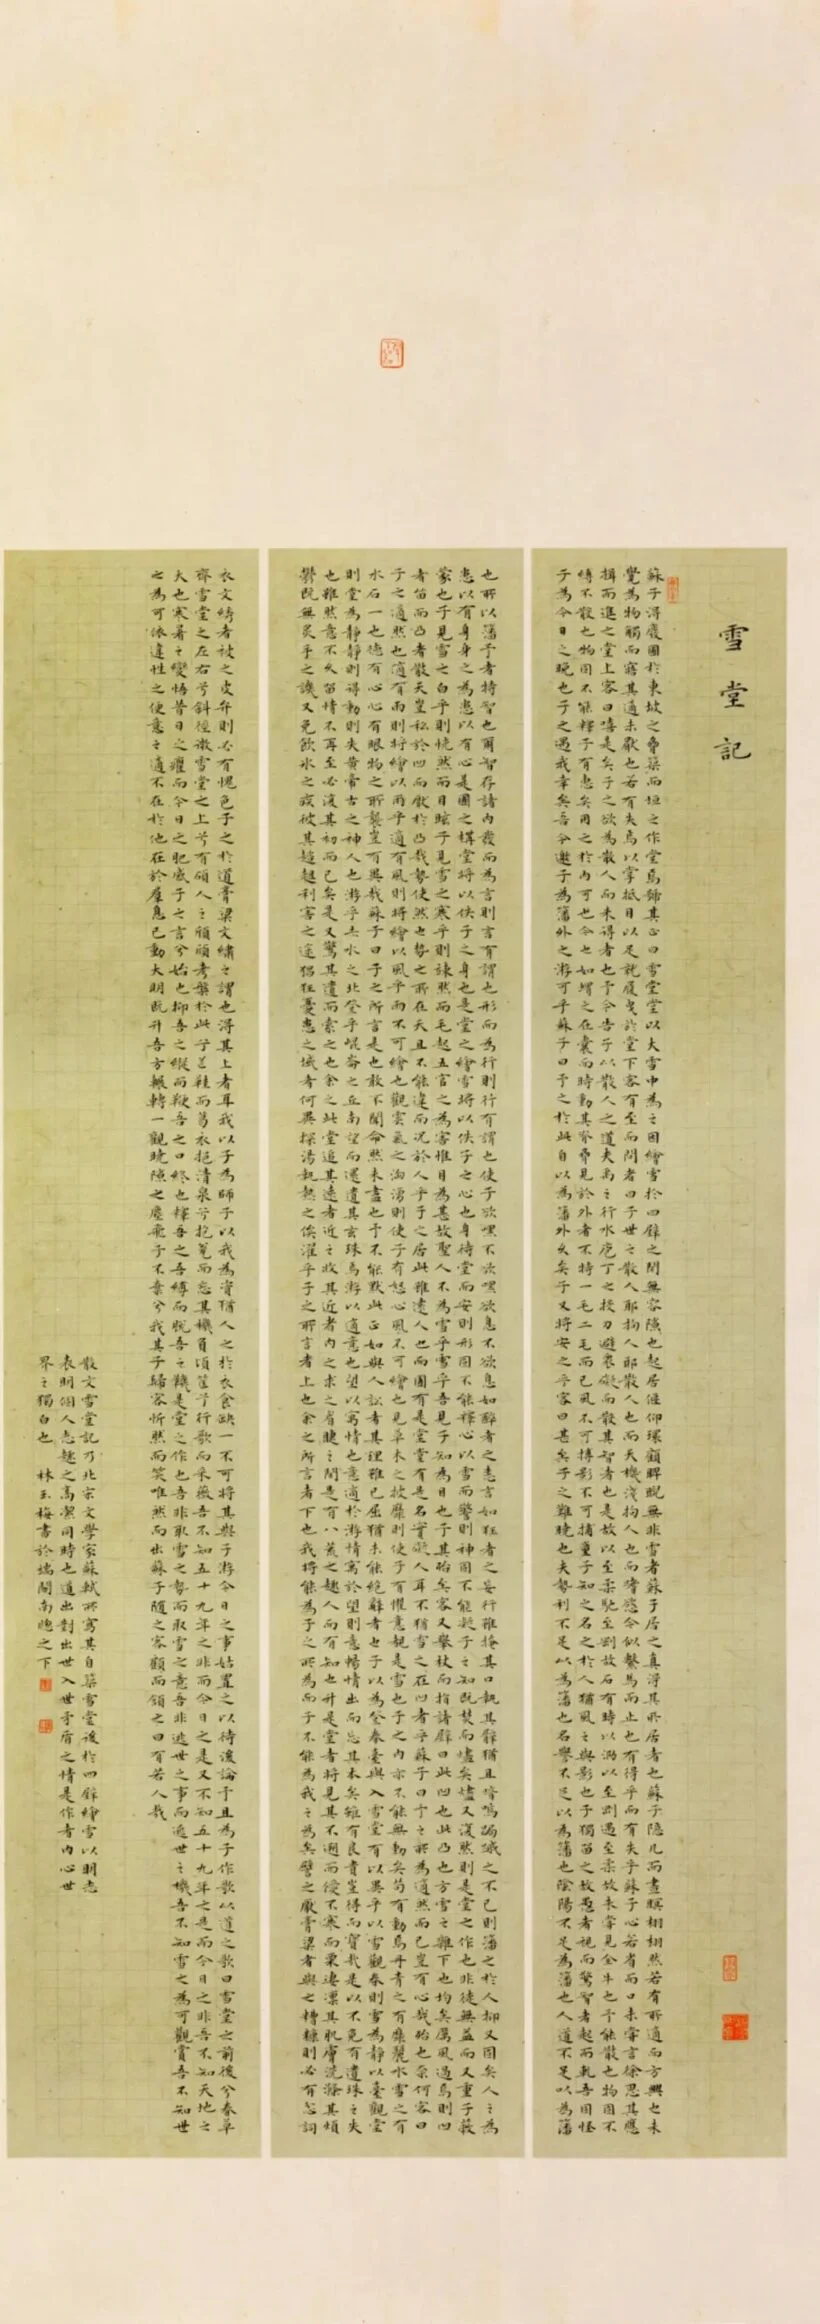 雪堂記
蘇子得廢圃於東坡之脅築而垣之作堂焉號其正曰雪堂堂以大雪中為之因繪雪於四壁之間無容隙也起居偃仰環顧睥睨無非雪者蘇子居之真得其所居者也蘇子隱几而晝瞑栩栩然若有所適而方興也未
覺為物觸而寤其適未厭也若有失焉以掌抵目以足就履曳於堂下客有至而問者曰子世之散人耶拘人耶散人也而天機淺拘人也而嗜慾今似繫馬而止也有得乎而有失乎蘇子心若省而口未嘗言徐思其應
揖而進之堂上客曰嘻是矣子之欲為散人而未得者也予今告子以散人之道夫禹之行水庖丁之投刀避衆礙而散其智者也是故以至柔馳至剛故石有時以泐以至剛遇至柔故未嘗見全牛也予能散也物固不
縛不散也物固不能釋子有惠矣用之於內可也今也如蝟之在囊而時動其脊脅見於外者不特一毛二毛而已風不可搏影不可捕童子知之名之於人猶風之與影也子獨留之故愚者視而驚智者起而軋吾固怪
子為今日之晚也子之遇我幸矣吾今邀子為藩外之游可乎蘇子曰予之於此自以為藩外久矣子又將安之乎客曰甚矣子之難曉也夫勢利不足以為藩也名譽不足以為藩也陰陽不足為藩也人道不足以為藩
也所以藩予者特智也爾智存諸內發而為言則言有謂也形而為行則行有謂也使子欲嘿不欲嘿欲息不欲息如醉者之恚言如狂者之妄行雖掩其口執其臂猶且喑嗚跼蹙之不已則藩之於人抑又固矣人之為
患以有身身之為患以有心是圃之構堂將以佚子之身也是堂之繪雪將以佚子之心也身待堂而安則形固不能釋心以雪而警則神固不能凝子之知既焚而燼矣燼又復然則是堂之作也非徒無益而又重子蔽
蒙也子見雪之白乎則恍然而目眩子見雪之寒乎則竦然而毛起五官之為害惟目為甚故聖人不為雪乎雪乎吾見子知為目也子其殆矣客又舉杖而指諸壁曰此凹也此凸也方雪之雜下也均矣厲風過焉則凹
者留而凸者散天豈私於凹而厭於凸哉勢使然也勢之所在天且不能違而況於人乎子之居此雖遠人也而圃有是堂堂有是名實礙人耳不猶雪之在凹者乎蘇子曰予之所為適然而已豈有心哉殆也奈何客曰
子之適然也適有雨則將繪以雨乎適有風則將繪以風乎雨不可繪也觀雲氣之洶湧則使子有怒心風不可繪也見草木之披靡則使子有懼意覩是雪也子之內亦不能無動矣苟有動焉丹青之有靡麗水雪之有
水石一也德有心心有眼物之所襲豈有異哉蘇子曰子之所言是也敢不聞命然未盡也予不能默此正如與人訟者其理雖已屈猶未能絕辭者也子以為登春臺與入雪堂有以異乎以雪觀春則雪為靜以臺觀堂
則堂為靜靜則得動則失黃帝古之神人也游乎赤水之北登乎崑崙之丘南望而還遺其玄珠焉游以適意也望以寓情也意適於游情寓於望則意暢情出而忘其本矣雖有良貴豈得而寶哉是以不免有遺珠之失
也雖然意不久留情不再至必復其初而已矣是又驚其遺而索之也余之此堂追其遠者近之收其近者內之求之眉睫之間是有八荒之趣人而有知也升是堂者將見其不遡而僾不寒而栗淒凜其肌膚洗滌其煩
鬱既無炙手之譏又免飲冰之疾彼其趑趄利害之途猖狂憂患之域者何異探湯執熱之俟濯乎子之所言者上也余之所言者下也我將能為子之所為而子不能為我之為矣譬之厭膏粱者與之糟糠則必有忿詞
衣文繡者被之皮弁則必有愧色子之於道膏粱文繡之謂也得其上者耳我以子為師子以我為資猶人之於衣食缺一不可將其與子游今日之事姑置之以待後論予且為子作歌以道之歌曰雪堂之前後兮春草
齊雪堂之左右兮斜徑微雪堂之上兮有碩人之頎頎考槃於此兮芒鞋而葛衣挹清泉兮抱甕而忘其機負頃筐兮行歌而采薇吾不知五十九年之非而今日之是又不知五十九年之是而今日之非吾不知天地之
大也寒暑之變悟昔日之癯而今日之肥感子之言兮始也抑吾之縱而鞭吾之口終也釋吾之縛而脫吾之鞿是堂之作也吾非取雪之勢而取雪之意吾非逃世之事而逃世之機吾不知雪之為可觀賞吾不知世
之為可依違性之便意之適不在於他在於羣息已動大明既升吾方輾轉一觀曉隙之塵飛子不棄兮我其子歸客忻然而笑唯然而出蘇子隨之客顧而頷之曰有若人哉
散文雪堂記乃北宋文學家蘇軾所寫其自築雪堂後於四壁繪雪以明志
表明個人志趣之高潔同時也道出對出世入世矛盾之情是作者內心世
界之獨白也 林玉梅書於端閣南牕之下